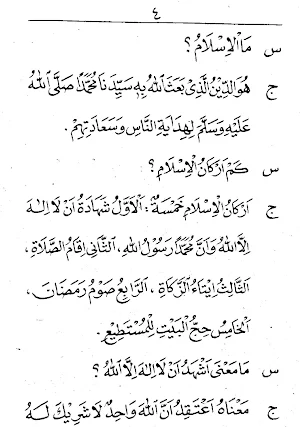 ٤
س مَا الْإِسْلَامُ؟
ج هُوَ الدِّيْنُ الَّذِيْ بَعَثَ اللهُ بِهِ سَيِّدَنَا مُحَمَّدًا صَلَّى اللهُ
عَلَيْهِ وَسَلَّمَ لِهِدَايَةِ النَّاسِ وَسَعَادَتِهِمْ.
س كَمْ اَرْكَانُ الْإِسْلَامِ؟
ج اَرْكَانُ الْإِسْلَامِ خَمْسَةٌ: اَلْاَوَّلُ شَهَادَةُ اَنْ لَا اِلٰهَ
اِلَّا اللهُ وَاَنَّ مُحَمَّدًا رَسُوْلُ اللهِ، اَلثَّانِى اِقَامُ الصَّلَاةِ،
اَلثَّالِثُ اِيْتَاءُ الزَّكَاةِ، اَلرَّابِعُ صَوْمُ رَمَضَانَ،
اَلْخَامِسُ حِجُّ الْبَيْتِ لِلْمُسْتَطِيْعِ.
س مَا مَعْنَى اَشْهَدُ اَنْ لَا اِلٰهَ اِلَّا اللهُ؟
ج مَعْنَاهُ اَعْتَقِدُ اَنَّ اللهَ وَاحِدٌ لَا شَرِيْكَ لَهُ